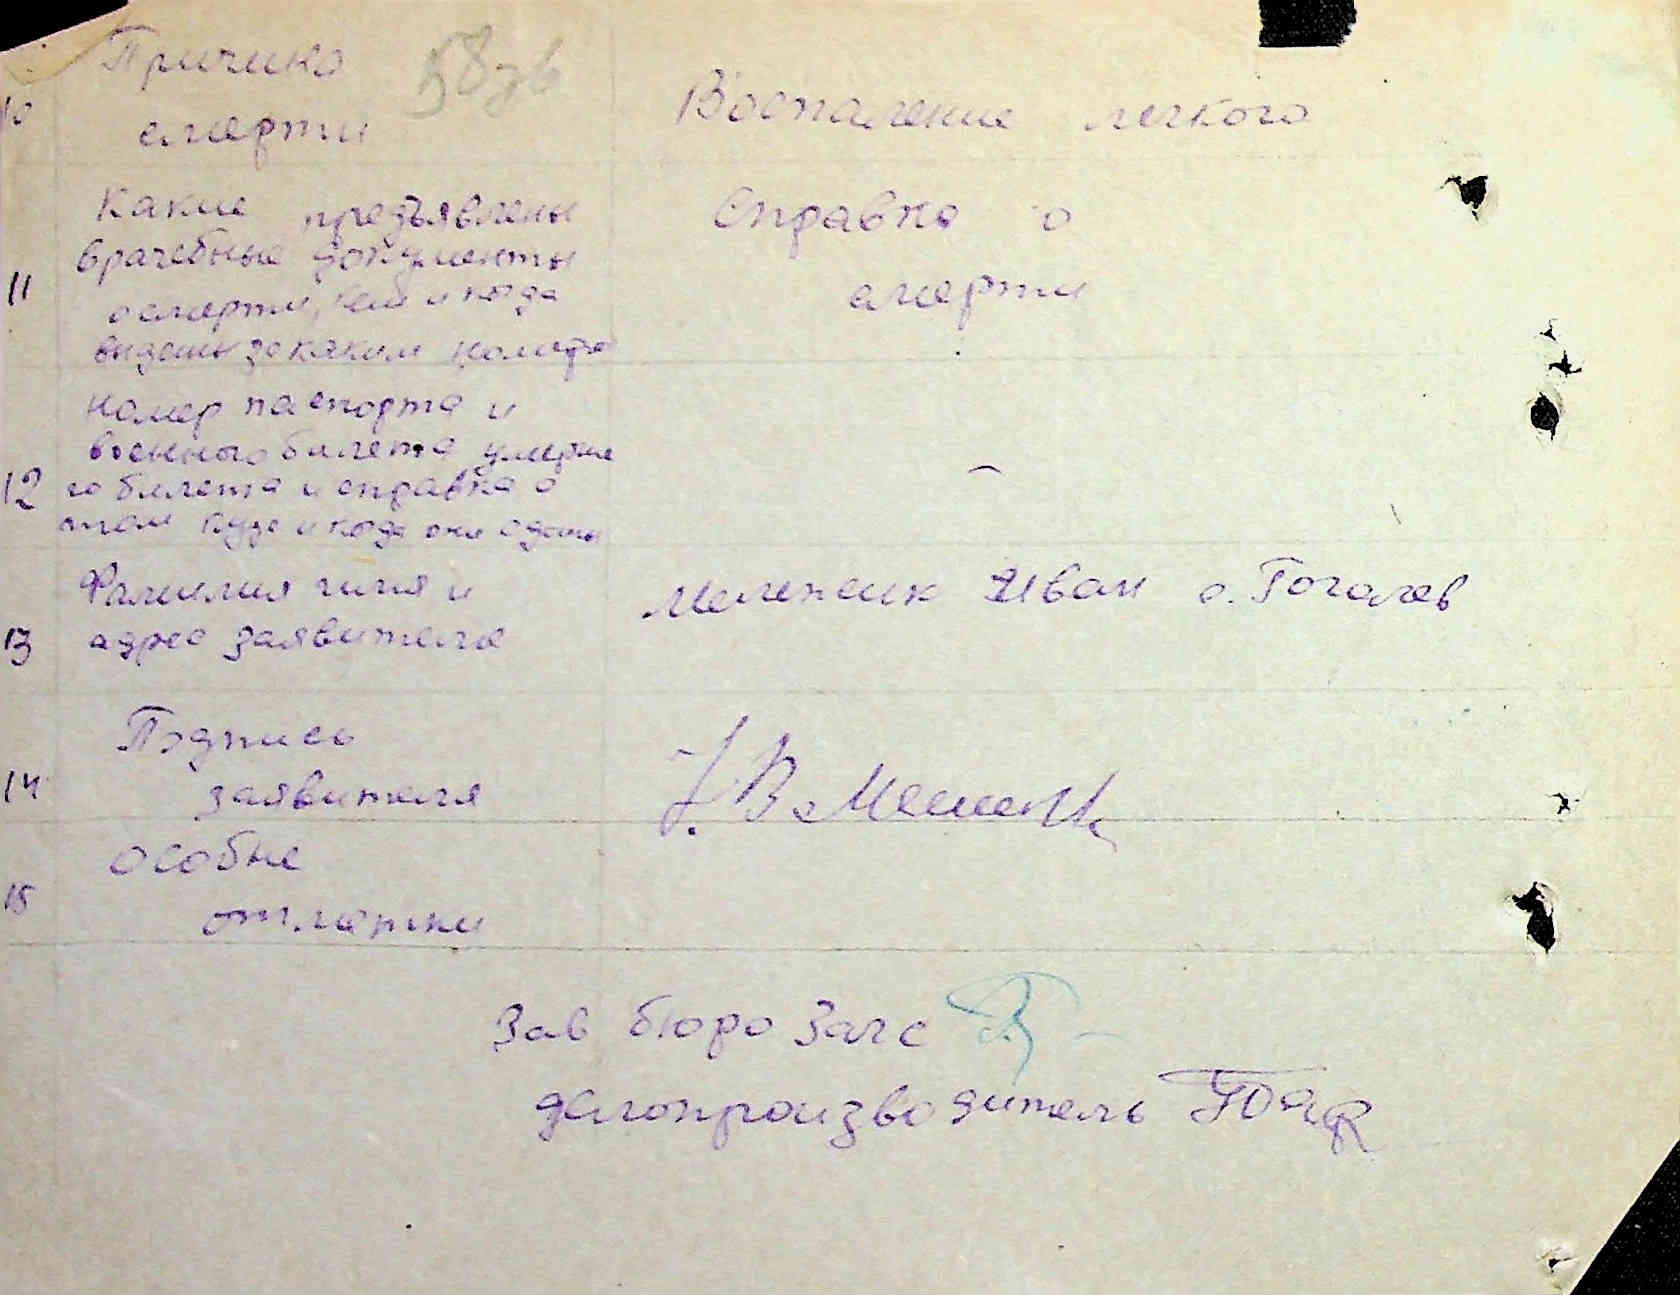 10 Причина
смерти
Воспаление легкого
11 Какие предъявлены
врачебные документы
о смерти, кем и когда
выданы за каким номером
Справка о
смерти
12 номер паспорта и
военного билета умерше
го билета и справка о
том куда и кода они сданы
–
13 Фамилия имя и
адрес заявителя
Мележик Иван с. Гоголев
14 Подпись
заявителя
15 особые
отметки
Зав бюро Загс
делопроизводитель